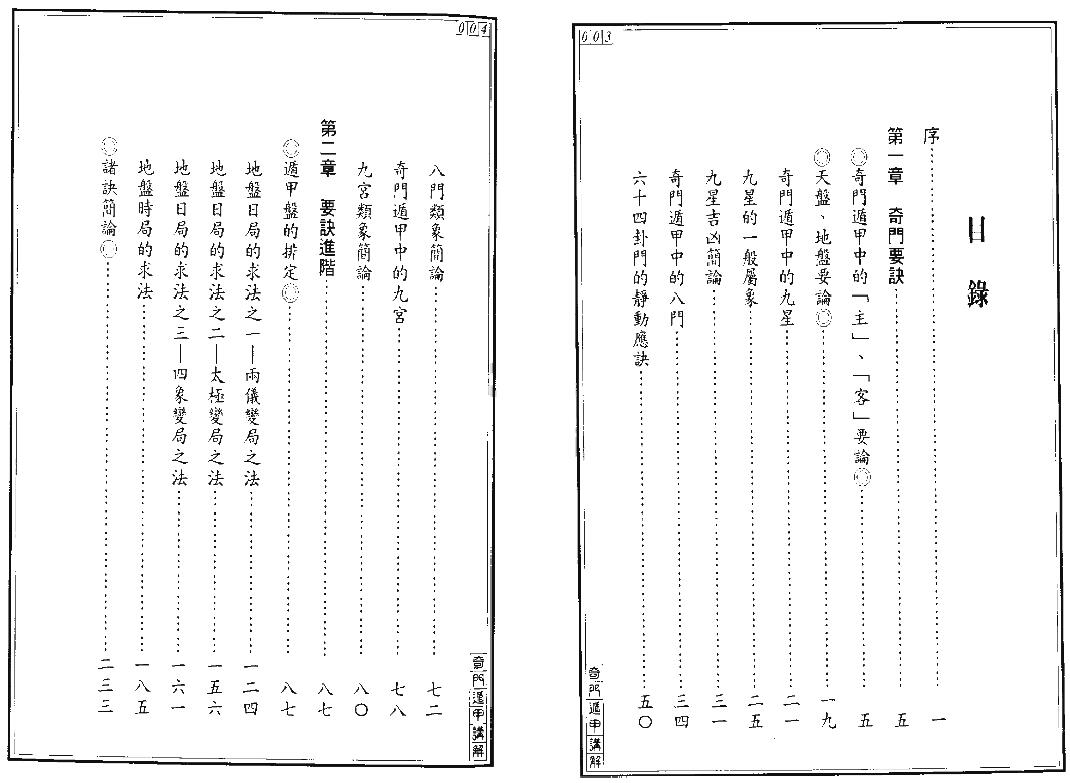 003
目錄
序……一
第一章 奇門要訣……五
◎奇門遁甲中的「主」、「客」要論◎……五
◎天盤、地盤要論◎……一九
奇門遁甲中的九星……二一
九星的一般屬象……二五
九星吉凶簡論……三一
奇門遁甲中的八門……三四
六十四卦門的靜動應訣……五〇
奇門遁甲講解
004
八門類象簡論……七二
奇門遁甲中的九宮……七八
九宮類象簡論……八〇
第二章 要訣進階……八七
◎遁甲盤的排定◎……八七
地盤日局的求法之一—兩儀變局之法……一二四
地盤日局的求法之二—太極變局之法……一五六
地盤日局的求法之三—四象變局之法……一六一
地盤時局的求法……一八五
◎諸訣簡論◎……二三三
奇門遁甲講解